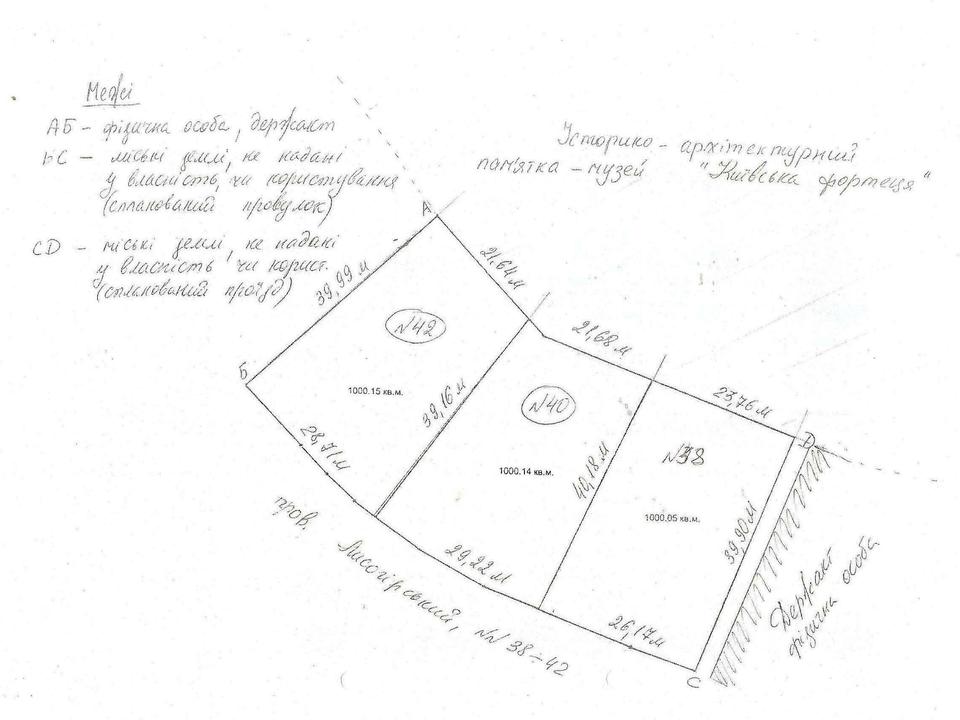 Межі
АБ – фізична особа, держакт
БС – міські землі, не надані
у власність, чи користування
(спланований провулок)
СD – міські землі, не надані
у власність чи корист.
(спланований проїзд)
Історико - архітектурний
пам'ятка - музей "Київська фортеця"
А
39,99 м
21,64 м
N42
21,68 м
Б
1000.15 кв.м.
39,16 м
N40
23,76 м
D
28,71 м
1000.14 кв.м.
40,18 м
N38
1000.05 кв.м.
39,90 м
пров.
Лисогірський, NN 38÷42
29,22 м
26,17 м
С
Держакт
фізична особа